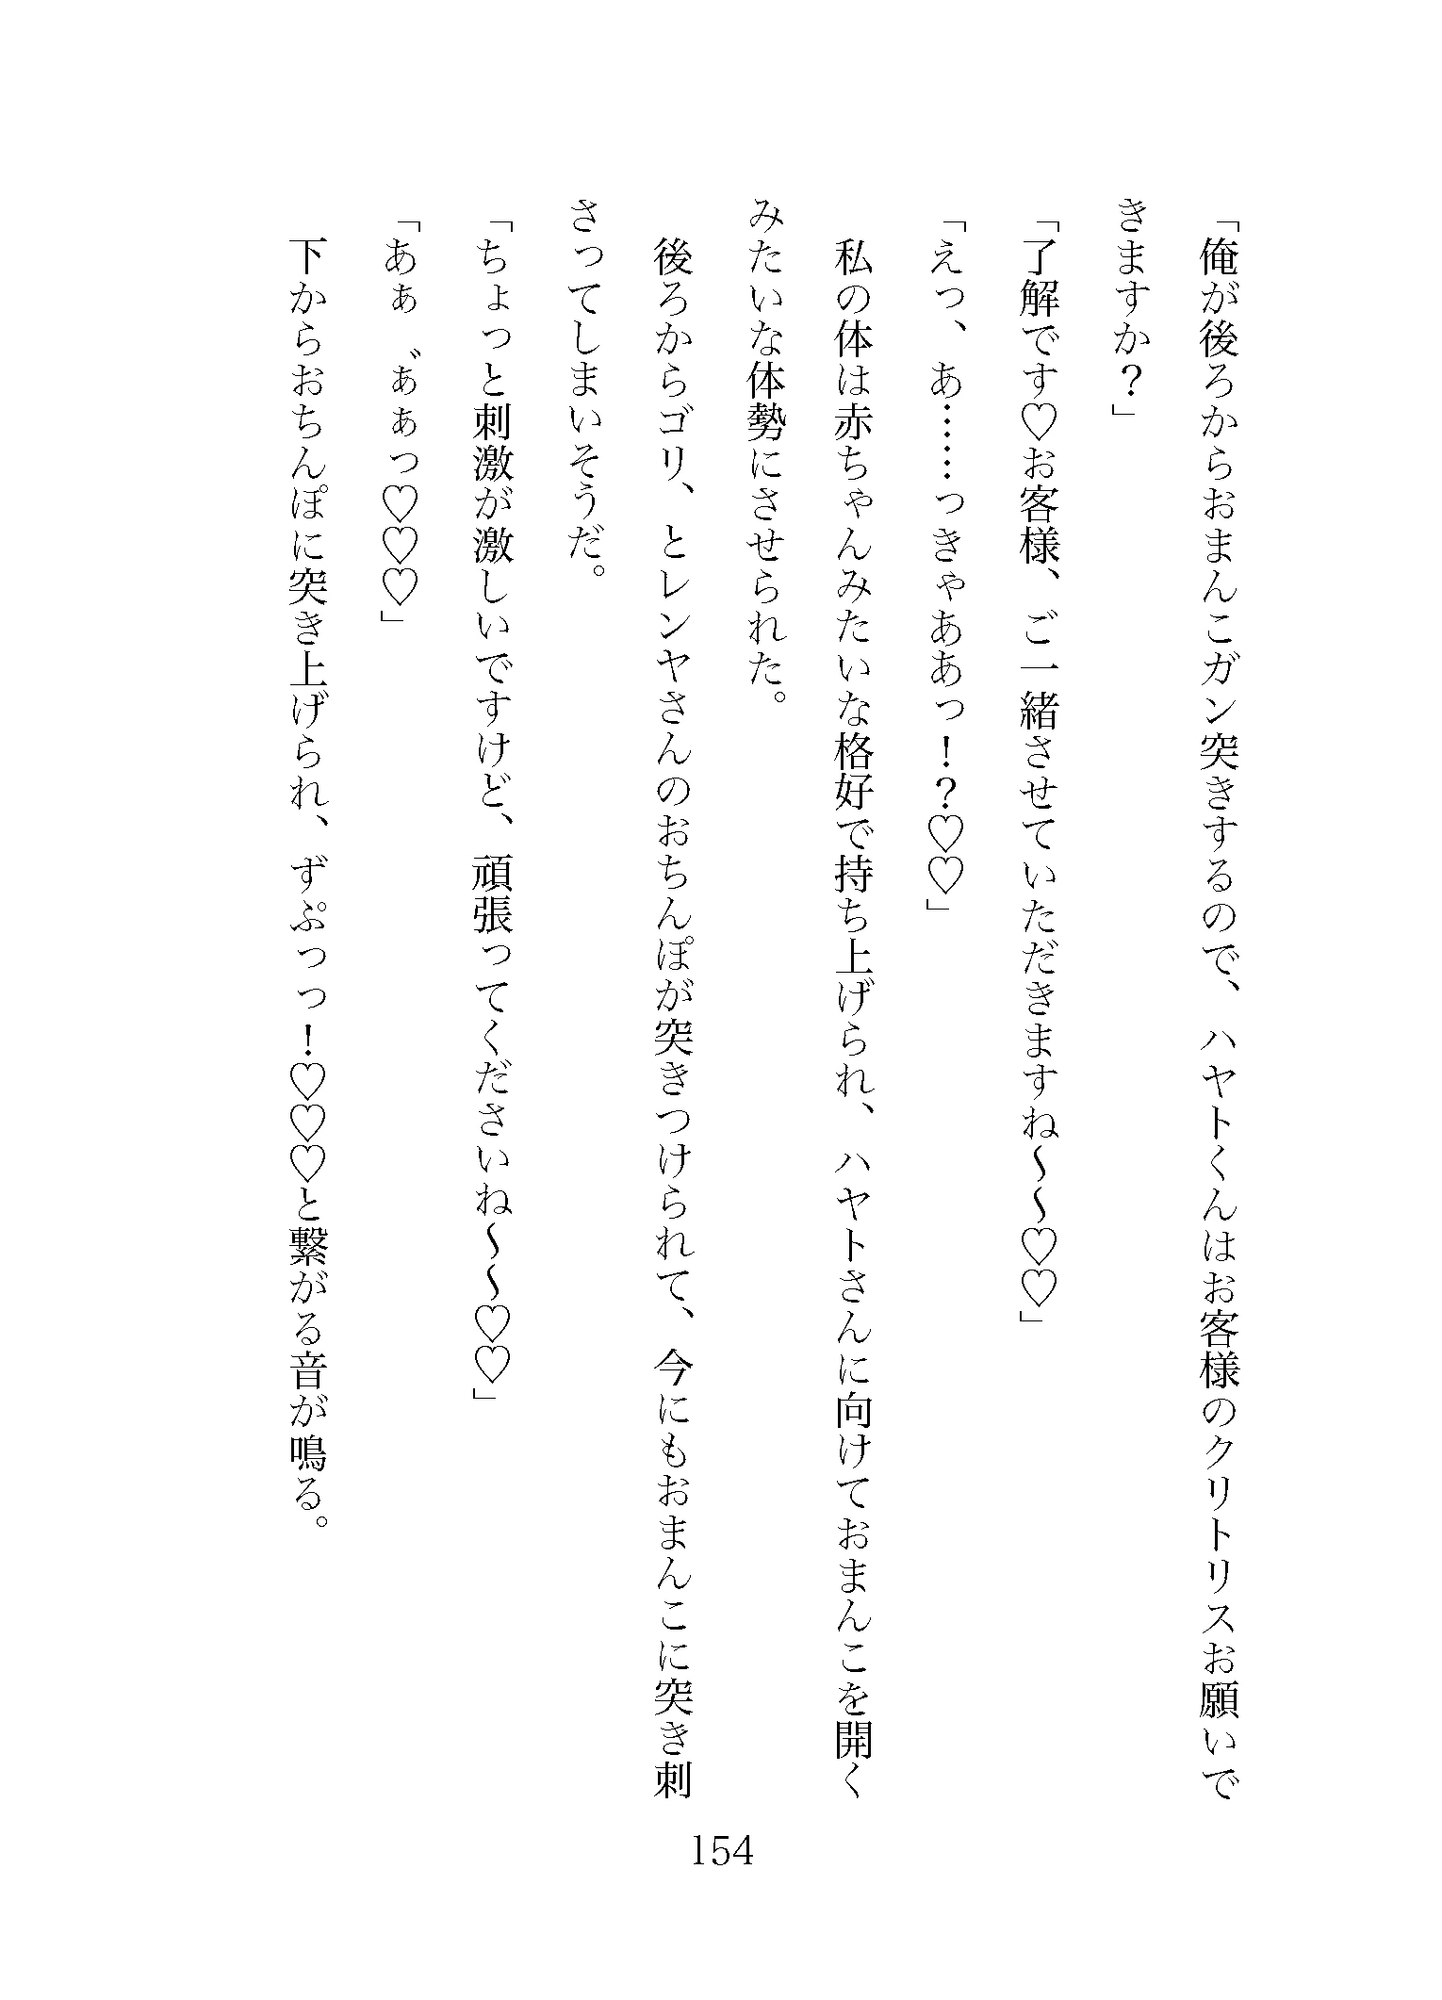 「俺が後ろからおまんこガン突きするので、ハヤトくんはお客様のクリトリスお願いで
きますか？」
「了解です♡お客様、ご一緒させていただきますね～～♡♡」
「えっ、あ……っきゃああっ！？♡♡」
　私の体は赤ちゃんみたいな格好で持ち上げられ、ハヤトさんに向けておまんこを開く
みたいな体勢にさせられた。
　後ろからゴリ、とレンヤさんのおちんぽが突きつけられて、今にもおまんこに突き刺
さってしまいそうだ。
「ちょっと刺激が激しいですけど、頑張ってくださいね～～♡♡」
「あぁ゛ぁぁっ♡♡♡」
　下からおちんぽに突き上げられ、ずぷっっ！♡♡♡と繋がる音が鳴る。
154